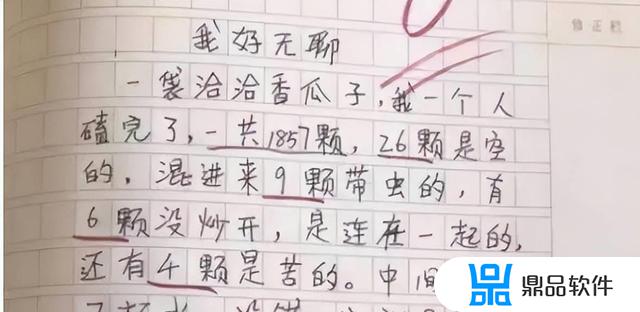 修正栏
我好无聊
一袋洽洽香瓜子,我一个人
磕完了,一共1857颗,26颗是空
的,混进来9颗带虫的,有
6颗没炒开,是连在一起的,
还有4颗是苦的。中间
鼎品软件